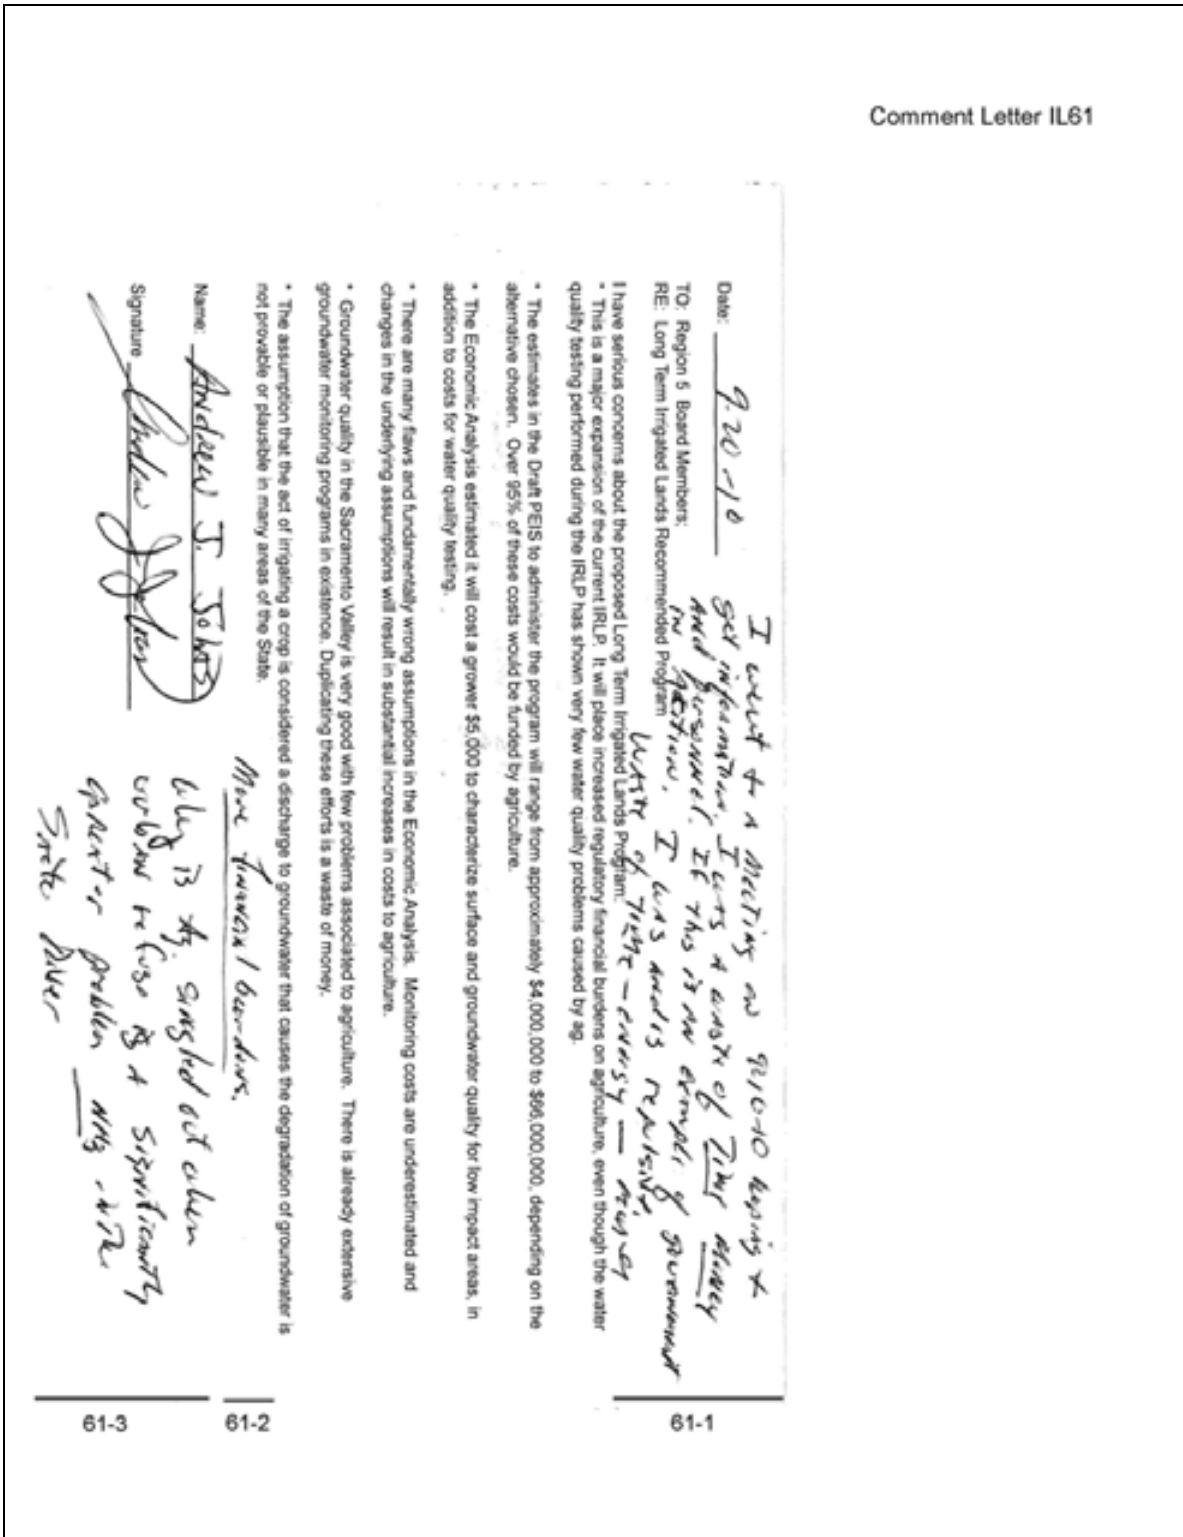 Comment Letter IL61
I went to a Meeting on 9-10-10 hoping to
get information. I was a waste of Time Money
And personnel. If this is an example of government
in action, I was and is repulsive
Waste of Time - energy - money
Date: 9-20-10
TO: Region 5 Board Members:
RE: Long Term Irrigated Lands Recommended Program
I have serious concerns about the proposed Long Term Irrigated Lands Program.
* This is a major expansion of the current IRLP. It will place increased regulatory financial burdens on agriculture, even though the water
quality testing performed during the IRLP has shown very few water quality problems caused by ag.
* The estimates in the Draft PEIS to administer the program will range from approximately $4,000,000 to $66,000,000, depending on the
alternative chosen. Over 95% of these costs would be funded by agriculture.
* The Economic Analysis estimated it will cost a grower $5,000 to characterize surface and groundwater quality for low impact areas, in
addition to costs for water quality testing.
* There are many flaws and fundamentally wrong assumptions in the Economic Analysis. Monitoring costs are underestimated and
changes in the underlying assumptions will result in substantial increases in costs to agriculture.
* Groundwater quality in the Sacramento Valley is very good with few problems associated to agriculture. There is already extensive
groundwater monitoring programs in existence. Duplicating these efforts is a waste of money.
* The assumption that the act of irrigating a crop is considered a discharge to groundwater that causes the degradation of groundwater is
not provable or plausible in many areas of the State.
More financial burdens.
Name: Andrew J.
Signature
Why is Ag. singled out when
urban refuse is a significantly
Greater problem
River
61-1
61-2
61-3